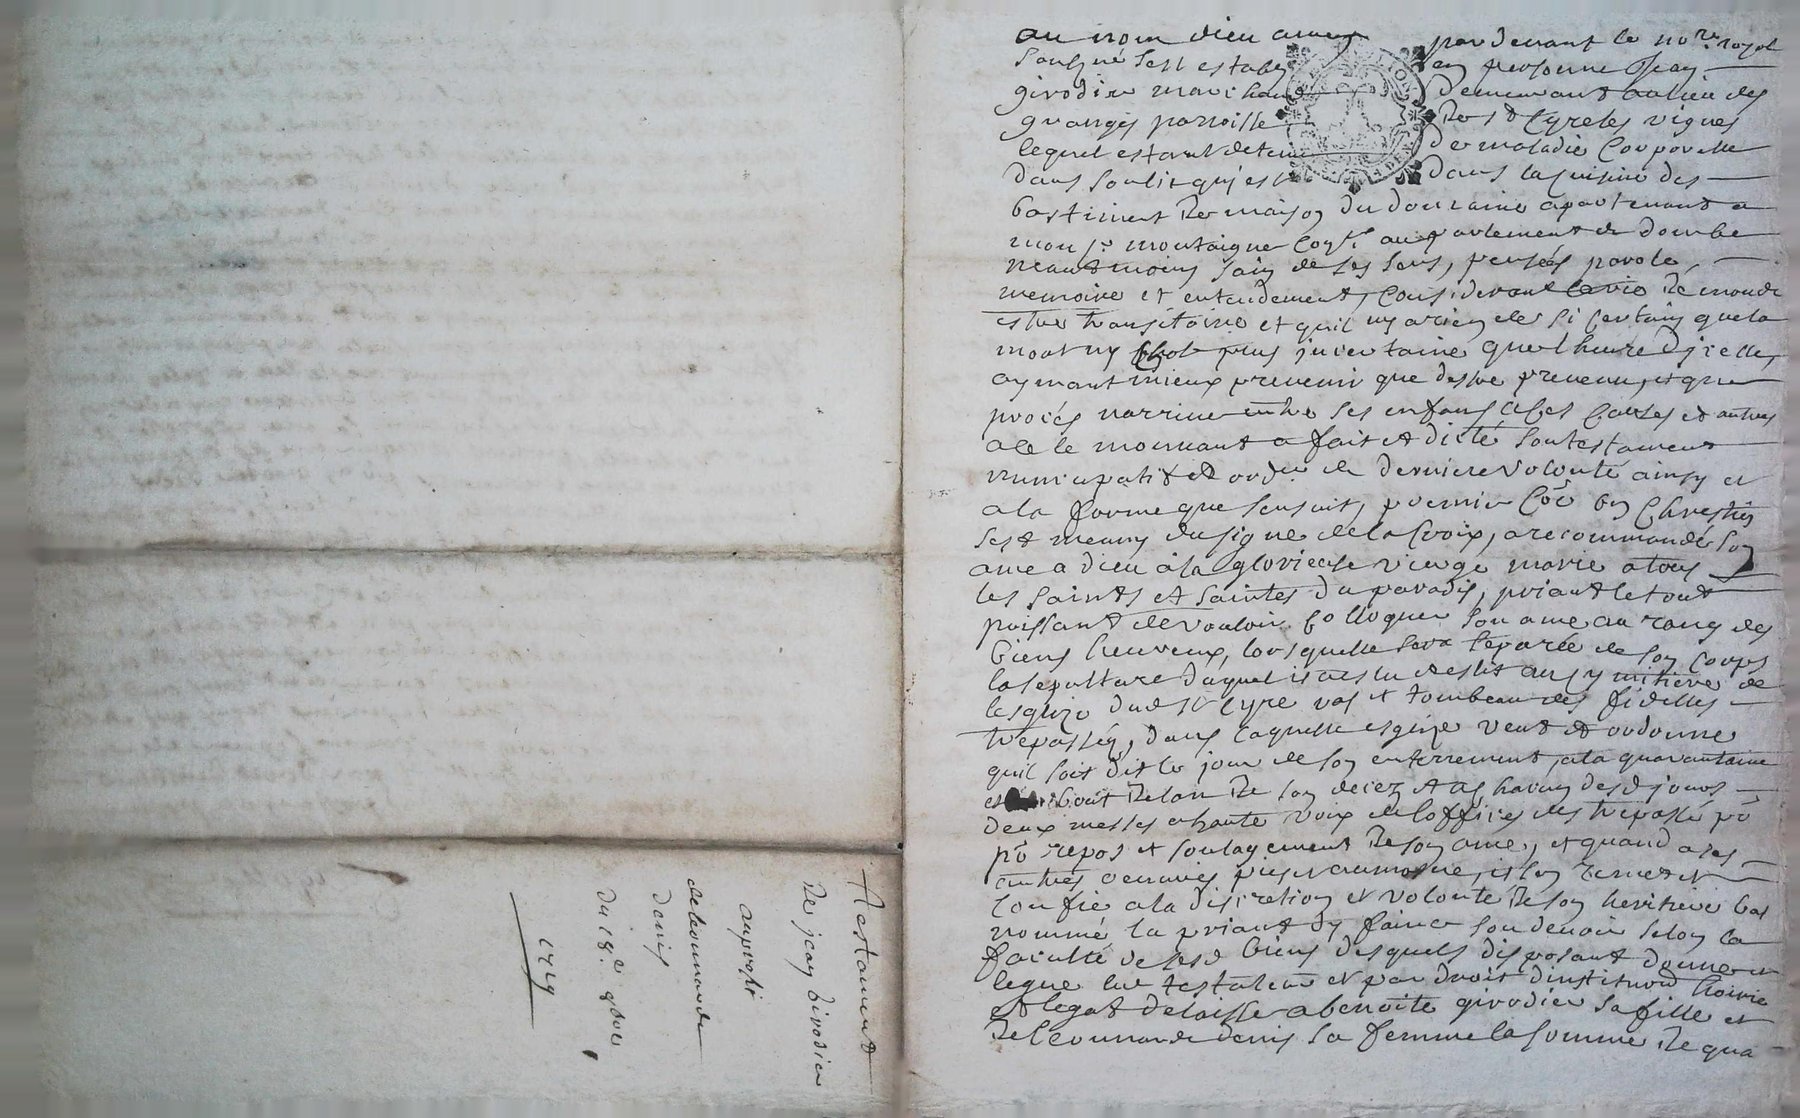 au nom dieu amen par devant le nore royal
soubsigné sest estably en personne Jean
girodier marchand demeurant au lieu des
granges parroisse de St Cyre les vignes
lequel estant detenu de maladie Corporelle
dans son lit qui est dans la cuisine des
bastiment de maison du domaine apartenant a
mon sr montaigne Coner au parlement de dombe
neantmoins sain de ses sens, pensées parole,
memoire et entendement, Considerant la vie de monde
estre transitoire et quil ny a rien de si certain que la
mort ny plus incertaine que lheure dicelle,
aymant mieux prevenir que destre prevenu, et que
procés narrive entre ses enfans a ses Causes et autres
a le mouvant a fait et dicté son testament
nuncupatif et ordre de derniere volonté ainsy et
a la forme que sensuit, premier Coe bon Chrestien
sest meuny du signe de la Croix, a recommandé son
ame a dieu à la glorieuse vierge marie a tous
les saints et saintes du paradis, priant le tout
puissant de vouloir Colloquer son ame au rang des
biens heureux, lorsquelle sera separée de son Corps
la sepulture duquel il a eslu au cymitiere de
lesglize dud St Cyre vas et tombeau des fidelles
trepassés, dans laquelle esglize veut et ordonne
quil soit dit le jour de son enterrement, a la quarantaine
et bout de lan de son decez et a chacun desd jours
deux messes a haute voix de loffices des trepassé po
po repos et soulagement de son ame, et quand a ses
autres oeuvres pies et aumosne, il sen remet et
Confie a la discretion et volonté de son heritiere bas
nommé la priant dy faire son devoir selon la
faculté de sesd biens desquels disposant donne et
legue led testateur et par droit dinstitution hoirie
et legat delaisse a benoite girodier sa fille et
de leonnarde denis sa femme la somme de qua
testament
de jean Girodier
auprofit
de leonnarde
denis
du 18e 8bre
1749